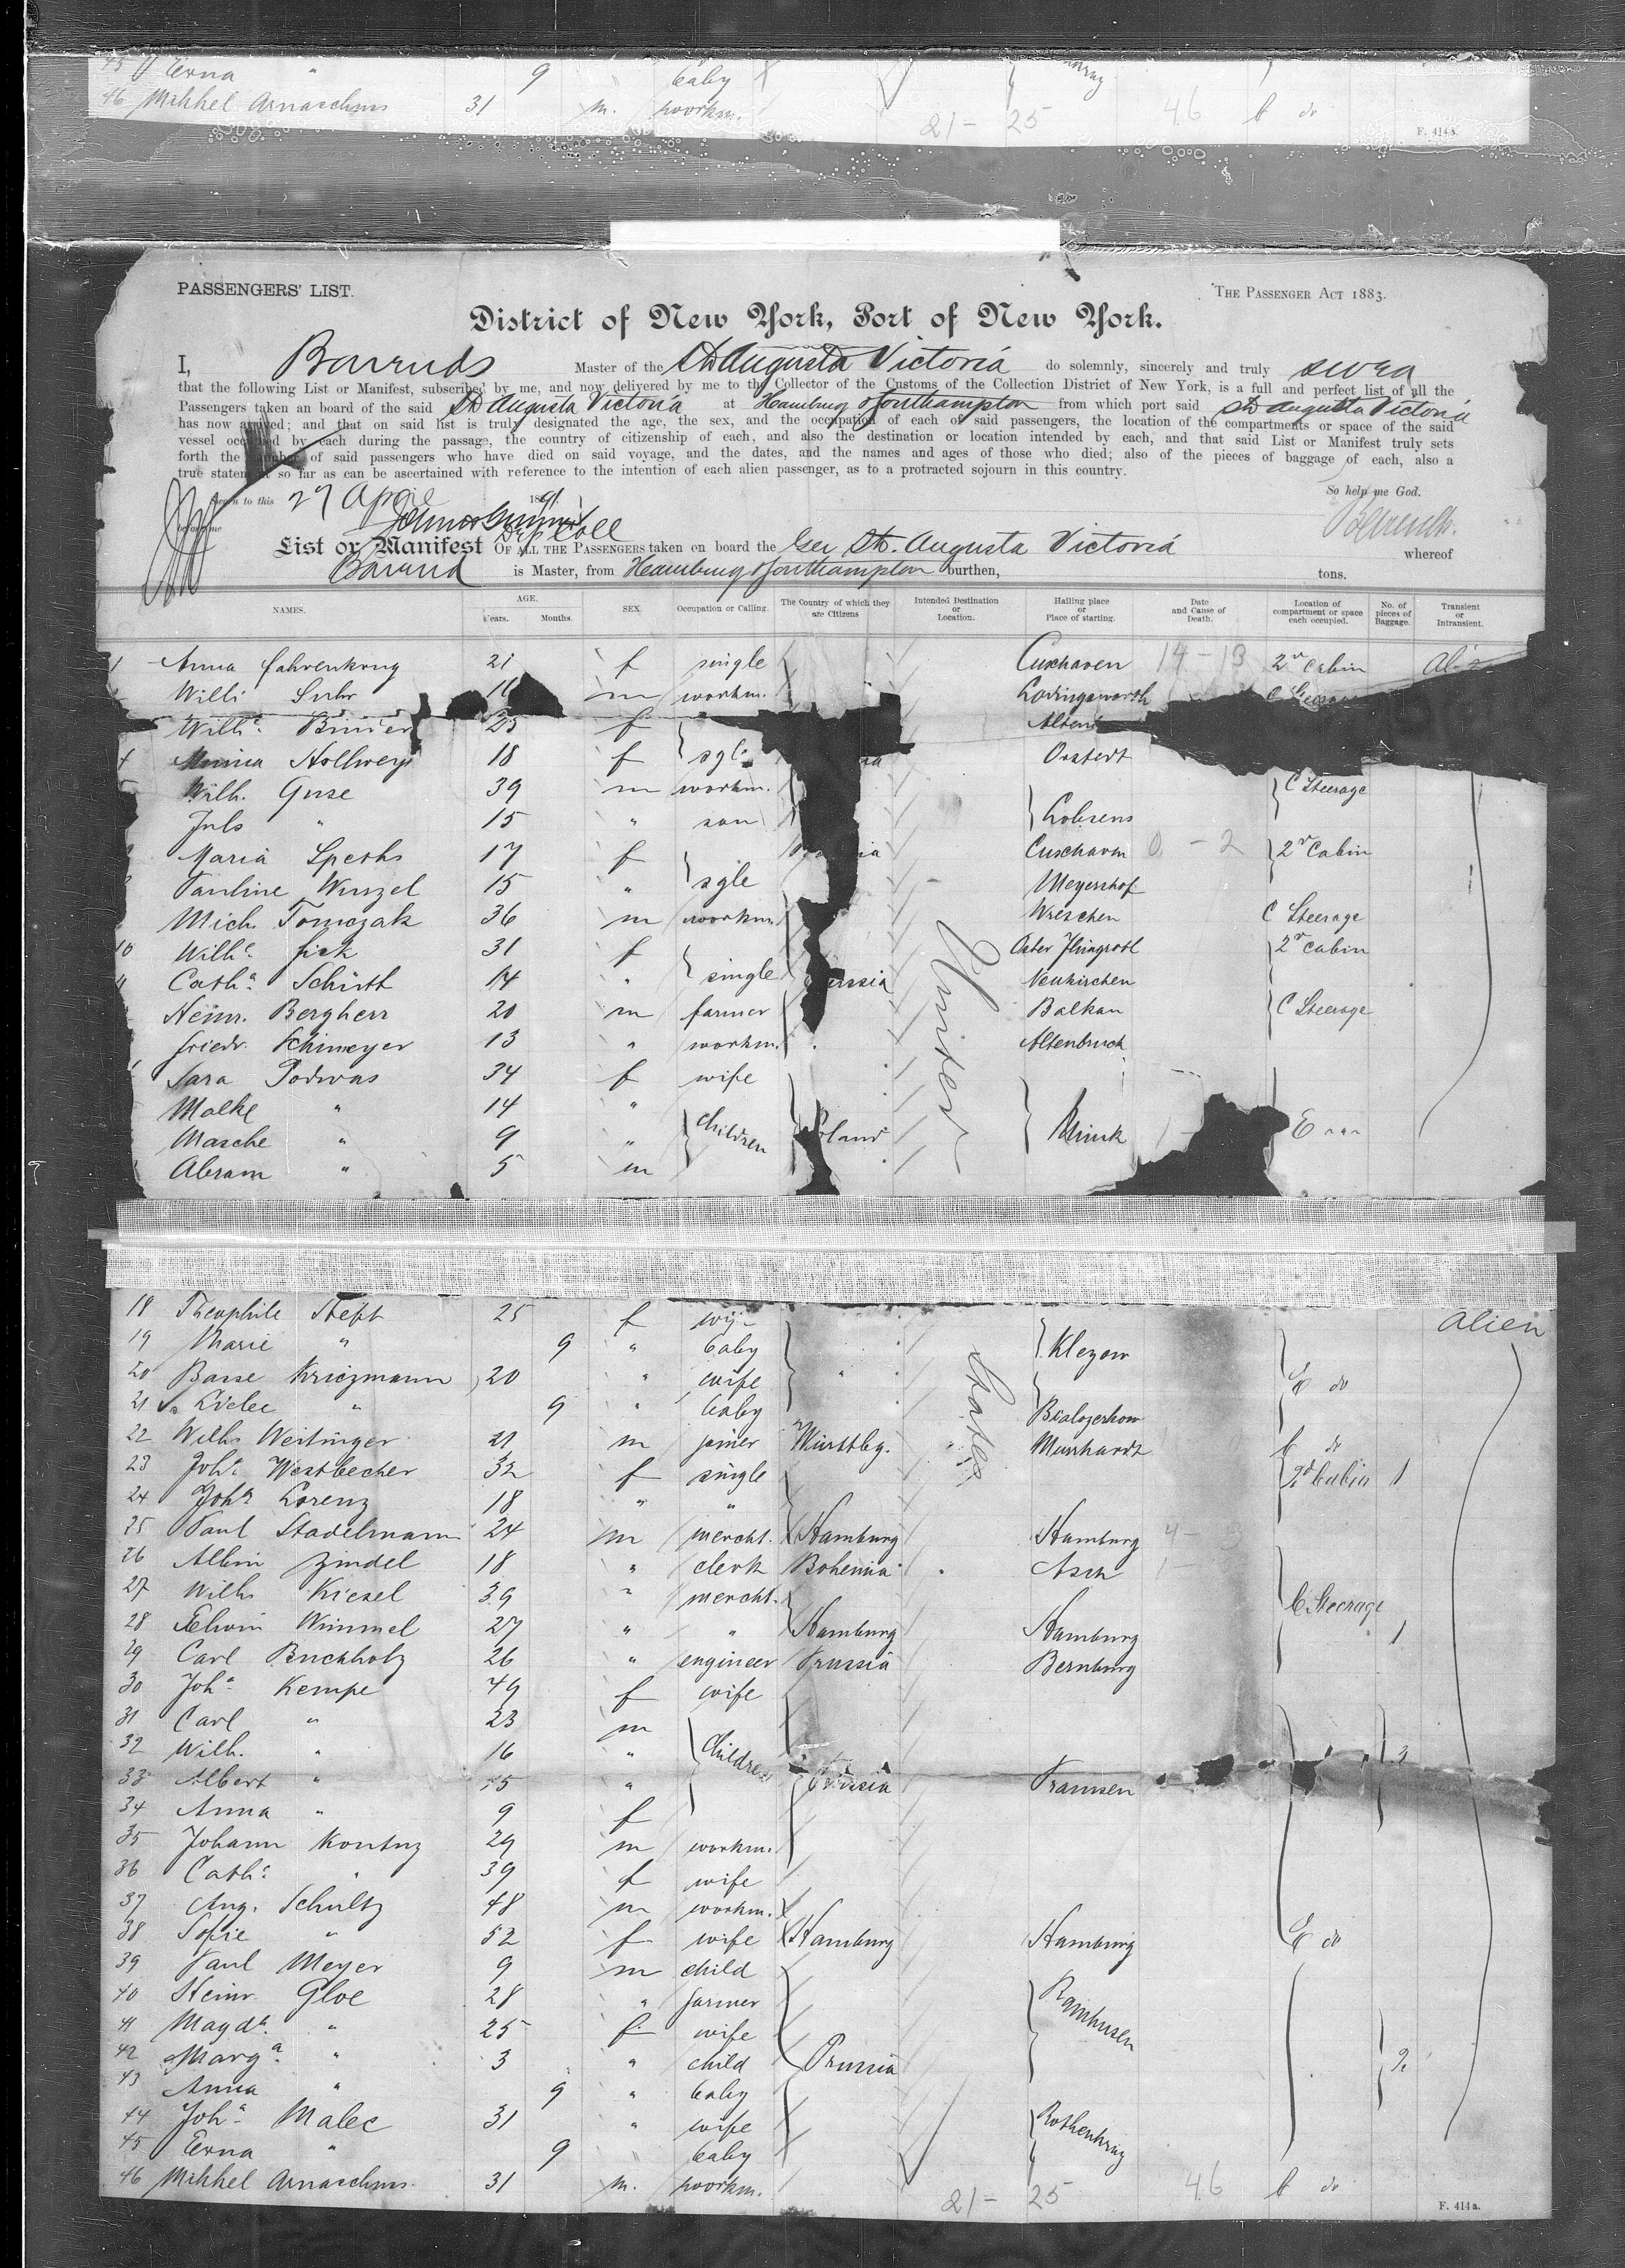 45 Erna " 9 " baby
46 Mikkel 31 m. workm. 21 - 25 46 C do
F. 414a.
PASSENGERS' LIST. THE PASSENGER ACT 1883.
District of New York, Port of New York.
I, Barends Master of the Str Augusta Victoria do solemnly, sincerely and truly swea
that the following List or Manifest, subscribed by me, and now delivered by me to the Collector of the Customs of the Collection District of New York, is a full and perfect list of all the
Passengers taken an board of the said Str Augusta Victoria at Hamburg & Southampton from which port said Str Augusta Victoria
has now arrived; and that on said list is truly designated the age, the sex, and the occupation of each of said passengers, the location of the compartments or space of the said
vessel occupied by each during the passage, the country of citizenship of each, and also the destination or location intended by each, and that said List or Manifest truly sets
forth the number of said passengers who have died on said voyage, and the dates, and the names and ages of those who died; also of the pieces of baggage of each, also a
true statement so far as can be ascertained with reference to the intention of each alien passenger, as to a protracted sojourn in this country.
Sworn to this 27 April 1891 So help me God.
before me Dep Coll Barends
List or Manifest OF ALL THE PASSENGERS taken on board the Ger Str. Augusta Victoria whereof
Barend is Master, from Hamburg & Southampton burthen, tons.
NAMES. AGE. Years. Months. SEX. Occupation or Calling. The Country of which they are Citizens Intended Destination or Location. Hailing place or Place of starting. Date and Cause of Death. Location of compartment or space each occupied. No. of pieces of Baggage. Transient or Intransient.
1 Anna Fahrenkrug 21 f single Cuxhaven 14 - 13 2nd Cabin
Willi Suhr m workm. C Steerage
Wilhe. Binder 25 f
4 Minna Hollweg 18 f sgle Orstedt
5 Wilh. Guse 39 m workm. C Steerage
Juls " 15 " son Lobsens
Maria Speths 17 f Cuxhaven 0 - 2 2nd Cabin
Pauline Wenzel 15 " sgle Meyershof
Mich. Tomczak 36 m workm. Wreschen C Steerage
10 Wilhe. Fick 31 f 2nd Cabin
11 Catha. Schütt 14 " single Prussia Neukirchen
Heinr. Bergherr 20 m farmer Balkau C Steerage
Friedr. Schimeyer 13 " workm. Altenbruch
Sara Podwas 34 f wife
Malke " 14 " children
Masche " 9 " Poland Minsk E " " "
Abram " 5 m
United
18 Theophile Steft 25 f wife Alien
19 Marie " 9 " baby Kleyow
20 Basse Kriegmann 20 " wife E do
21 " 9 " baby
22 Wilh. Weitinger 21 m joiner Württbg. Murrhardt C do
23 Joha. Westbecher 32 f single 2nd Cabin 1
24 Joha. Lorenz 18 " "
25 Paul Stadelmann 24 m mercht. Hamburg Hamburg
26 Albin Zindel 18 " clerk Bohemia Asch
27 Wilh. Kiesel 39 " mercht. C. Steerage
28 Edwin Wimmel 27 " " Hamburg Hamburg 1
29 Carl Buchholz 26 " engineer Prussia Bernburg
30 Joha. Kempe 49 f wife
31 Carl " 23 m
32 Wilh. " 16 " children 3
33 Albert " 15 " Prussia Pramsen
34 Anna " 9 f
35 Johann Kontny 29 m workm.
36 Catha. " 39 f wife
37 Aug. Schultz 48 m workm.
38 Sofie " 52 f wife Hamburg Hamburg E do
39 Paul Meyer 9 m child
40 Heinr. Gloe 28 " farmer Ramhusen
41 Magda. " 25 f wife
42 Marga. " 3 " child Prussia 2
43 Anna " 9 " baby
44 Joha. Malec 31 " wife
45 Erna " 9 " baby
46 Mikkel 31 m. workm. 21 - 25 46 C do
States
F. 414a.